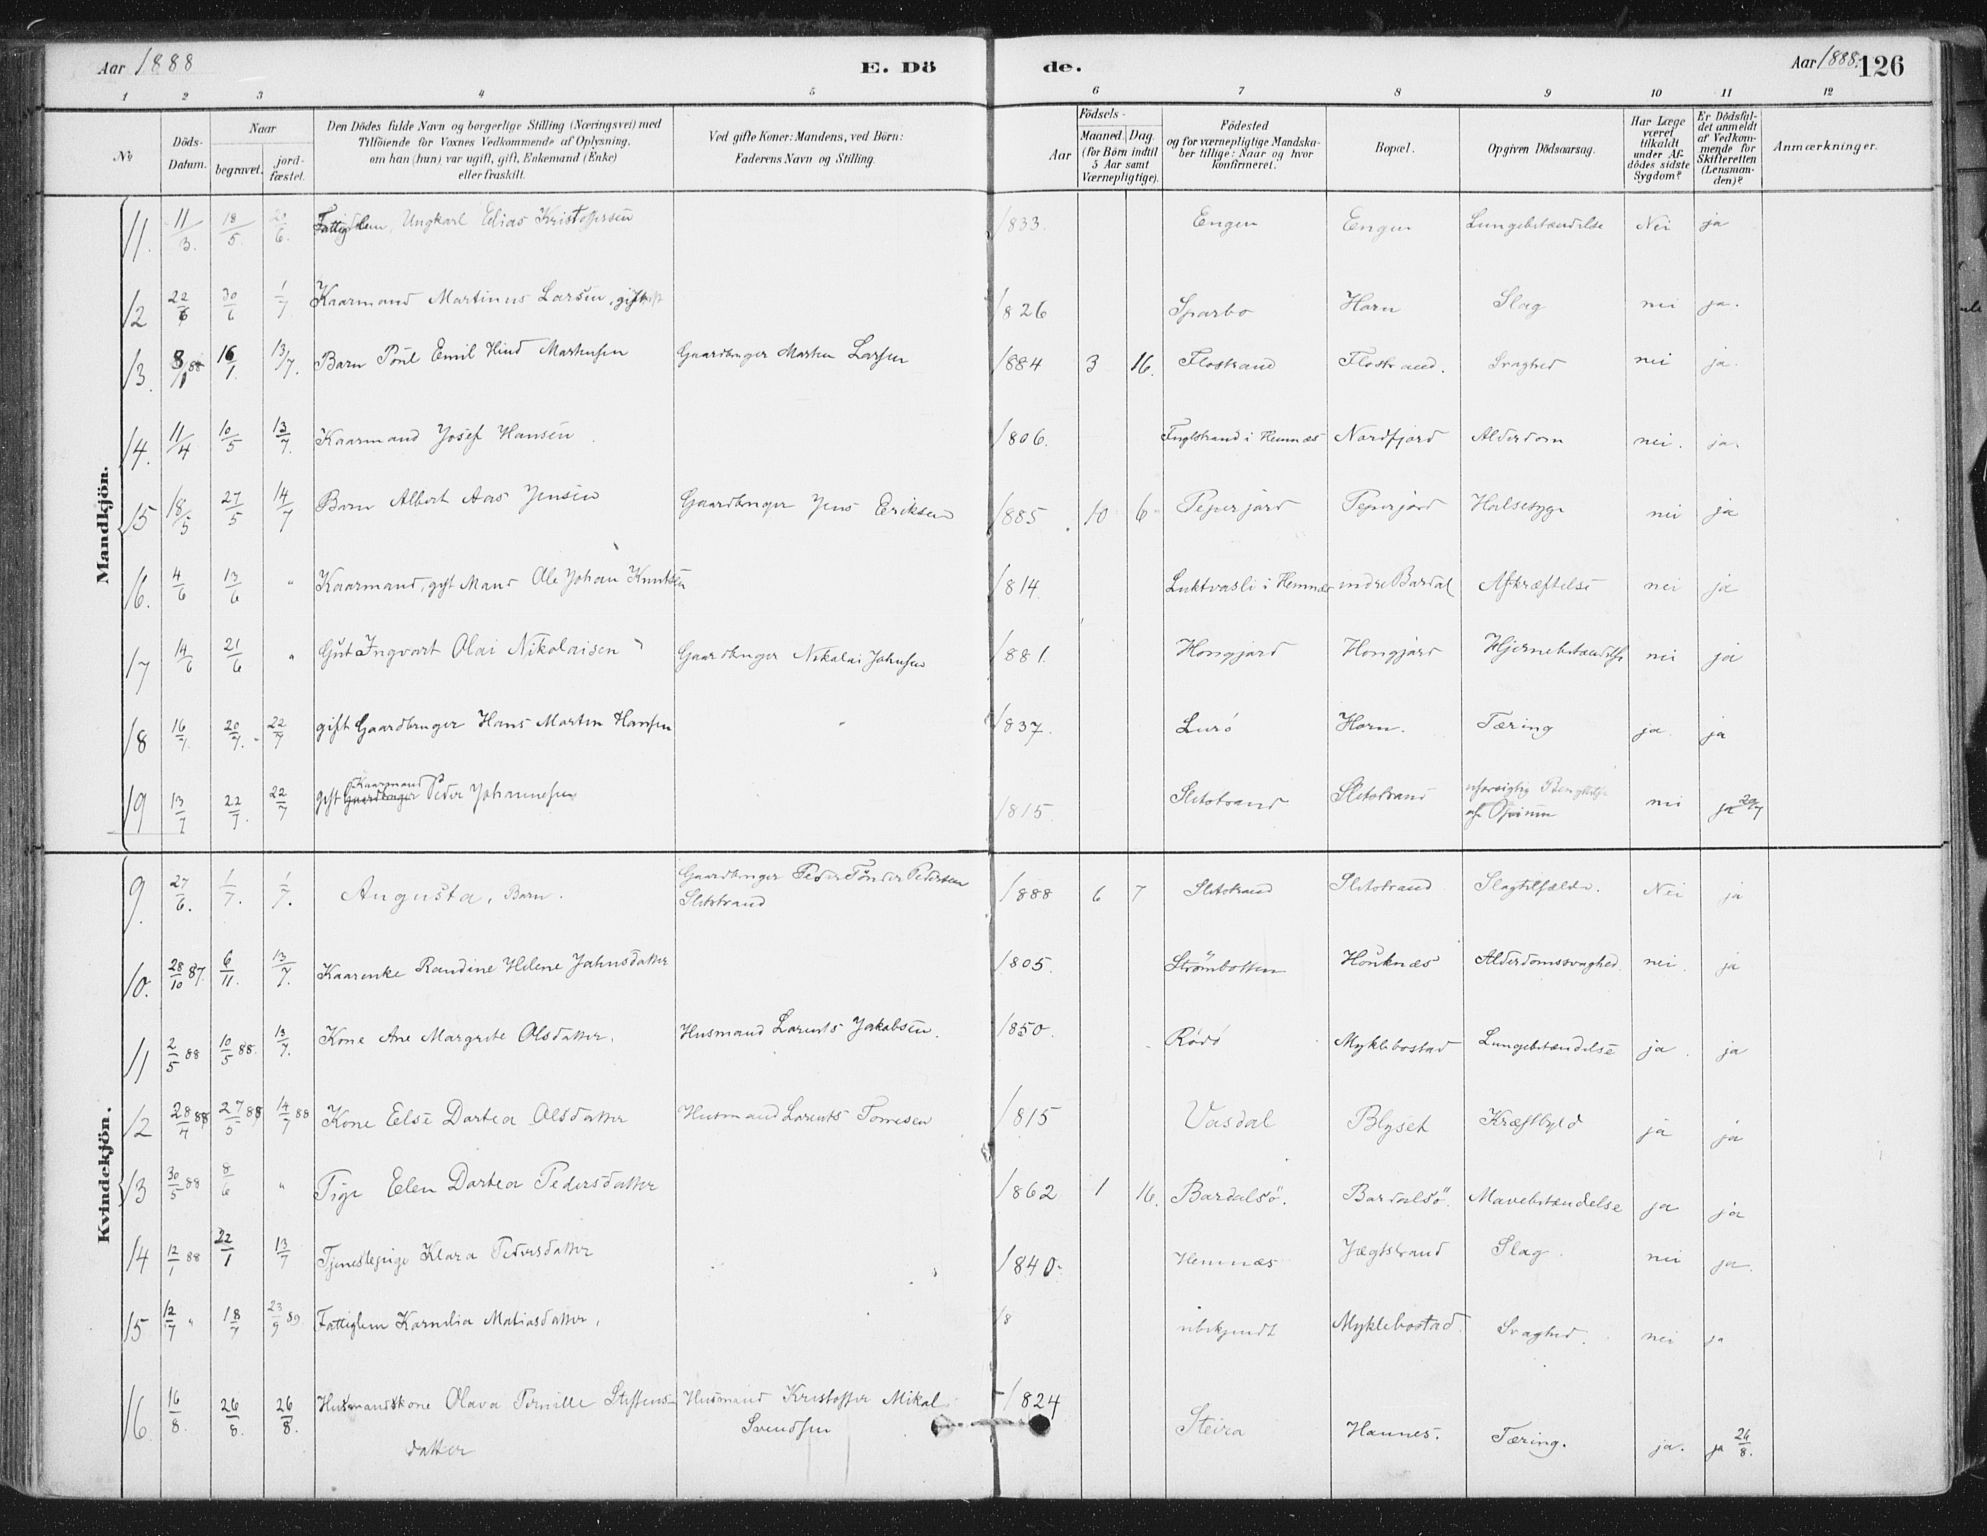 Aar 1888 E. Dö de. Aar 1888. 126
1 2 3 4 5 6 7 8 9 10 11 12
No
Döds-Datum.
Naar
begravet.
jord-fæstet.
Den Dödes fulde Navn og borgerlige Stilling (Næringsvei) med
Tilföiende for Voxnes Vedkommende af Oplysning.
om han (hun) var ugift, gift, Enkemand (Enke)
eller fraskilt.
Ved gifte Koner: Mandens, ved Börn:
Faderens Navn og Stilling.
Födsels-
Aar
Maaned. Dag.
(for Börn indtil
5 Aar samt
Værnepligtige).
Födested
og for værnepligtige Mandska-
ber tillige: Naar og hvor
konfirmeret.
Bopæl.
Opgiven Dödsaarsag.
Har Læge
været
tilkaldt
under Af-
dödes sidste
Sygdom?
Er Dödsfal-
det anmeldt
af Vedkom-
mende for
Skifteretten
(Lensman-
den)?
Anmærkninger.
Mandkjön.
11. 11/3. 18/5. 20/6. Fattiglem, Ungkarl Elias Kristofersen 1833. Engen Engen Lungebetændelse Nei ja
12 22/6 30/6 1/7 Kaarmand Martinus Larsen, gift 1826 Sparbo Horn Slag nei ja.
13. 88 16/1. 13/7. Barn Poul Emil Hind Martinsen Gaardbruger Martin Larsen 1884 3 16. Flostrand Flostrand. Svaghed nei ja.
14. 11/4 10/5 13/7. Kaarmand Josef Hansen 1806. Fuglstrand i Hemnæs Nordfjord Alderdom nei. ja.
15 18/5 27/5 14/7 Barn Albert Aas Jensen Gaardbruger Jens Eriksen 1885 10 6 Peperjord Peperjord Halsesyge nei ja
16. 4/6 13/6 " Kaarmand, gift Mand Ole Johan Knutsen 1814. Luktvasli i Hemnæs indre Bardal Afkræftelse nei ja
17 14/6 21/6 " Gut Ingvart Olai Nikolaisen Gaardbruger Nikolai Johnsen 1881. Hongjord Hongjord Hjernebetændelse nei ja
18 16/7. 20/7. 22/7 gift Gaardbruger Hans Martin Hansen 1837. Lurö Horn. Tæring ja. ja
19 13/7 22/7. 22/7 gift Gaardbruger Kaarmand Peder Johannesen 1815. Sletstrand Sletstrand uforsigtig af Opium nei ja
Kvindekjön.
9. 27/6. 1/7. 1/7. Augusta, Barn. Gaardbruger Peder Tönder Pedersen
Sletstrand 1888 6 7 Sletstrand Sletstrand Slagtilfælde. Nei ja
10. 28/10 87. 6/11. 13/7. Kaarenke Randine Helene Jahnsdatter 1805. Strömbotten Houknæs Alderdomssvaghed. nei. ja
11 2/5 88 10/5 88. 13/7. Kone Ane Margrete Olsdatter. Husmand Lorents Jakobsen. 1850. Rödö Myklebostad Lungebetændelse ja. ja
12 28/4 88 27/5 88 14/7 88 Kone Else Dortea Olsdatter Husmand Lorents Tomesen 1815 Vasdal Blyset Kræftbyld ja ja
13 30/5 88 8/6 " Pige Elen Dortea Pedersdatter 1862 1 16. Bardalsö. Bardalsö. Mavebetændelse ja ja
14 12/1 88 22/1 13/7 Tjenestepige Klara Pedersdatter 1840. Hemnæs Jægtstrand Slag. nei ja.
15 12/7 " 18/7 23/9 89 Fattiglem Karnilia Matiasdatter. 18 ubekjendt Myklebostad. Svaghed. nei ja
16. 16/8. 26/8. 26/8. Husmandskone Olava Pernille Steffens-
datter Husmand Kristoffer Mikal
Svendsen 1824 Steira Hannes. Tæring. ja. ja 26/8.